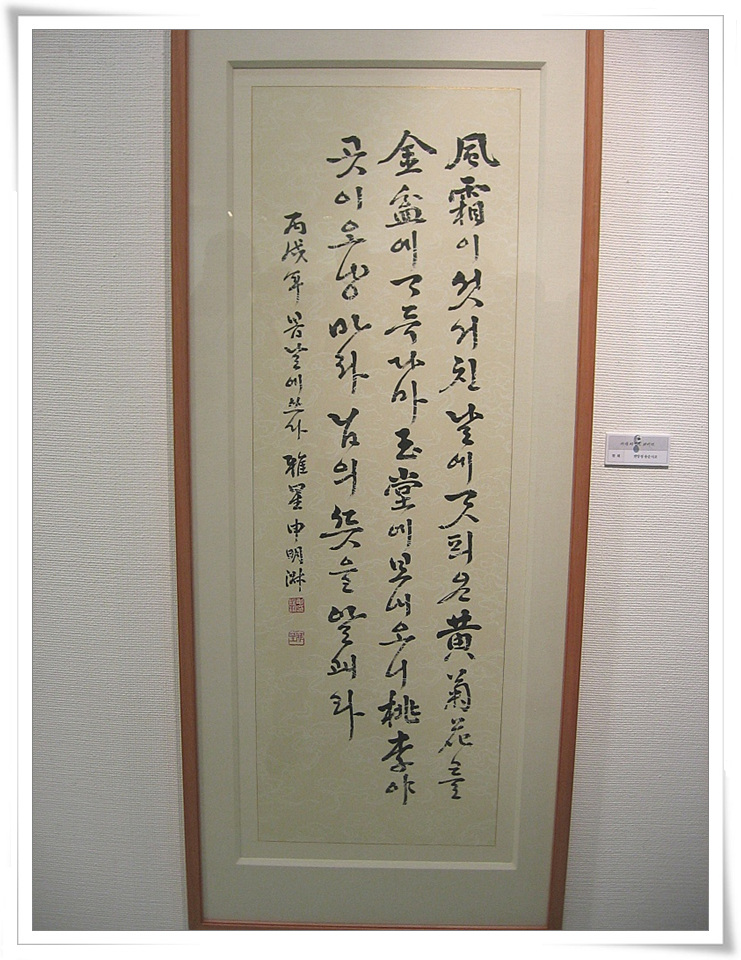 風霜이 섯거친 날에 ᄀᆞᆺ 피온 黃菊花를
金盆에 ᄀᆞ득 다마 玉堂에 보내오니 桃李야
곳이온 양 마라 님의 ᄯᅳᆺ을 알괘라
丙戌年 봄날에 쓰다 雅星 申明淋